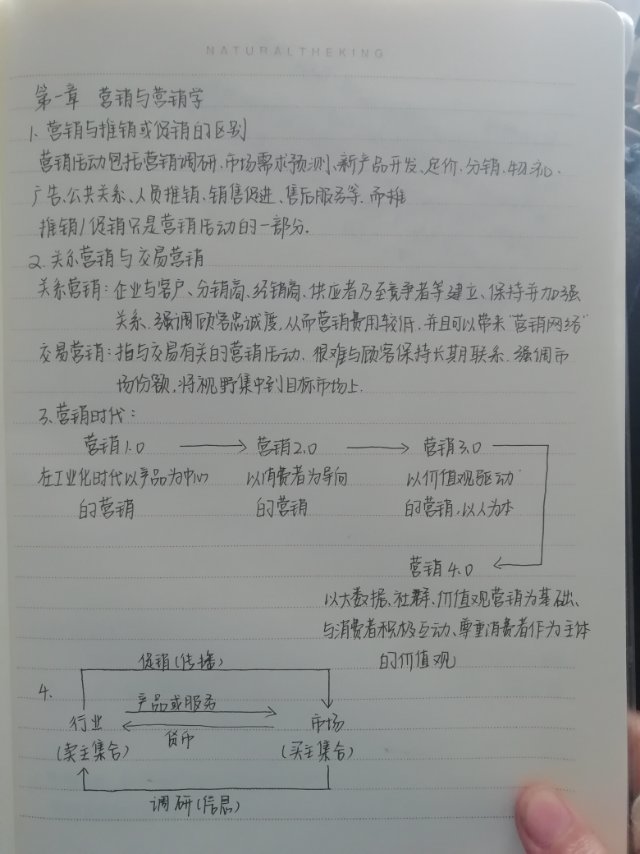 NATURALTHEKING
第一章 营销与营销学
1、营销与推销或促销的区别
营销活动包括营销调研、市场需求预测、新产品开发、定价、分销、物流、
广告、公共关系、人员推销、销售促进、售后服务等，而推
推销/促销只是营销活动的一部分.
2、关系营销与交易营销
关系营销：企业与客户、分销商、经销商、供应者乃至竞争者等建立、保持并加强
关系，强调顾客忠诚度，从而营销费用较低，并且可以带来“营销网络”
交易营销：指与交易有关的营销活动，很难与顾客保持长期联系，强调市
场份额，将视野集中到目标市场上.
3、营销时代：
营销1.0 → 营销2.0 → 营销3.0
在工业化时代以产品为中心 以消费者为导向 以价值观驱动
的营销 的营销 的营销，以人为本
营销4.0
以大数据、社群、价值观营销为基础、
与消费者积极互动、尊重消费者作为主体
的价值观
促销(传播)
4.
产品或服务
行业 市场
货币
(卖主集合) (买主集合)
调研(信息)